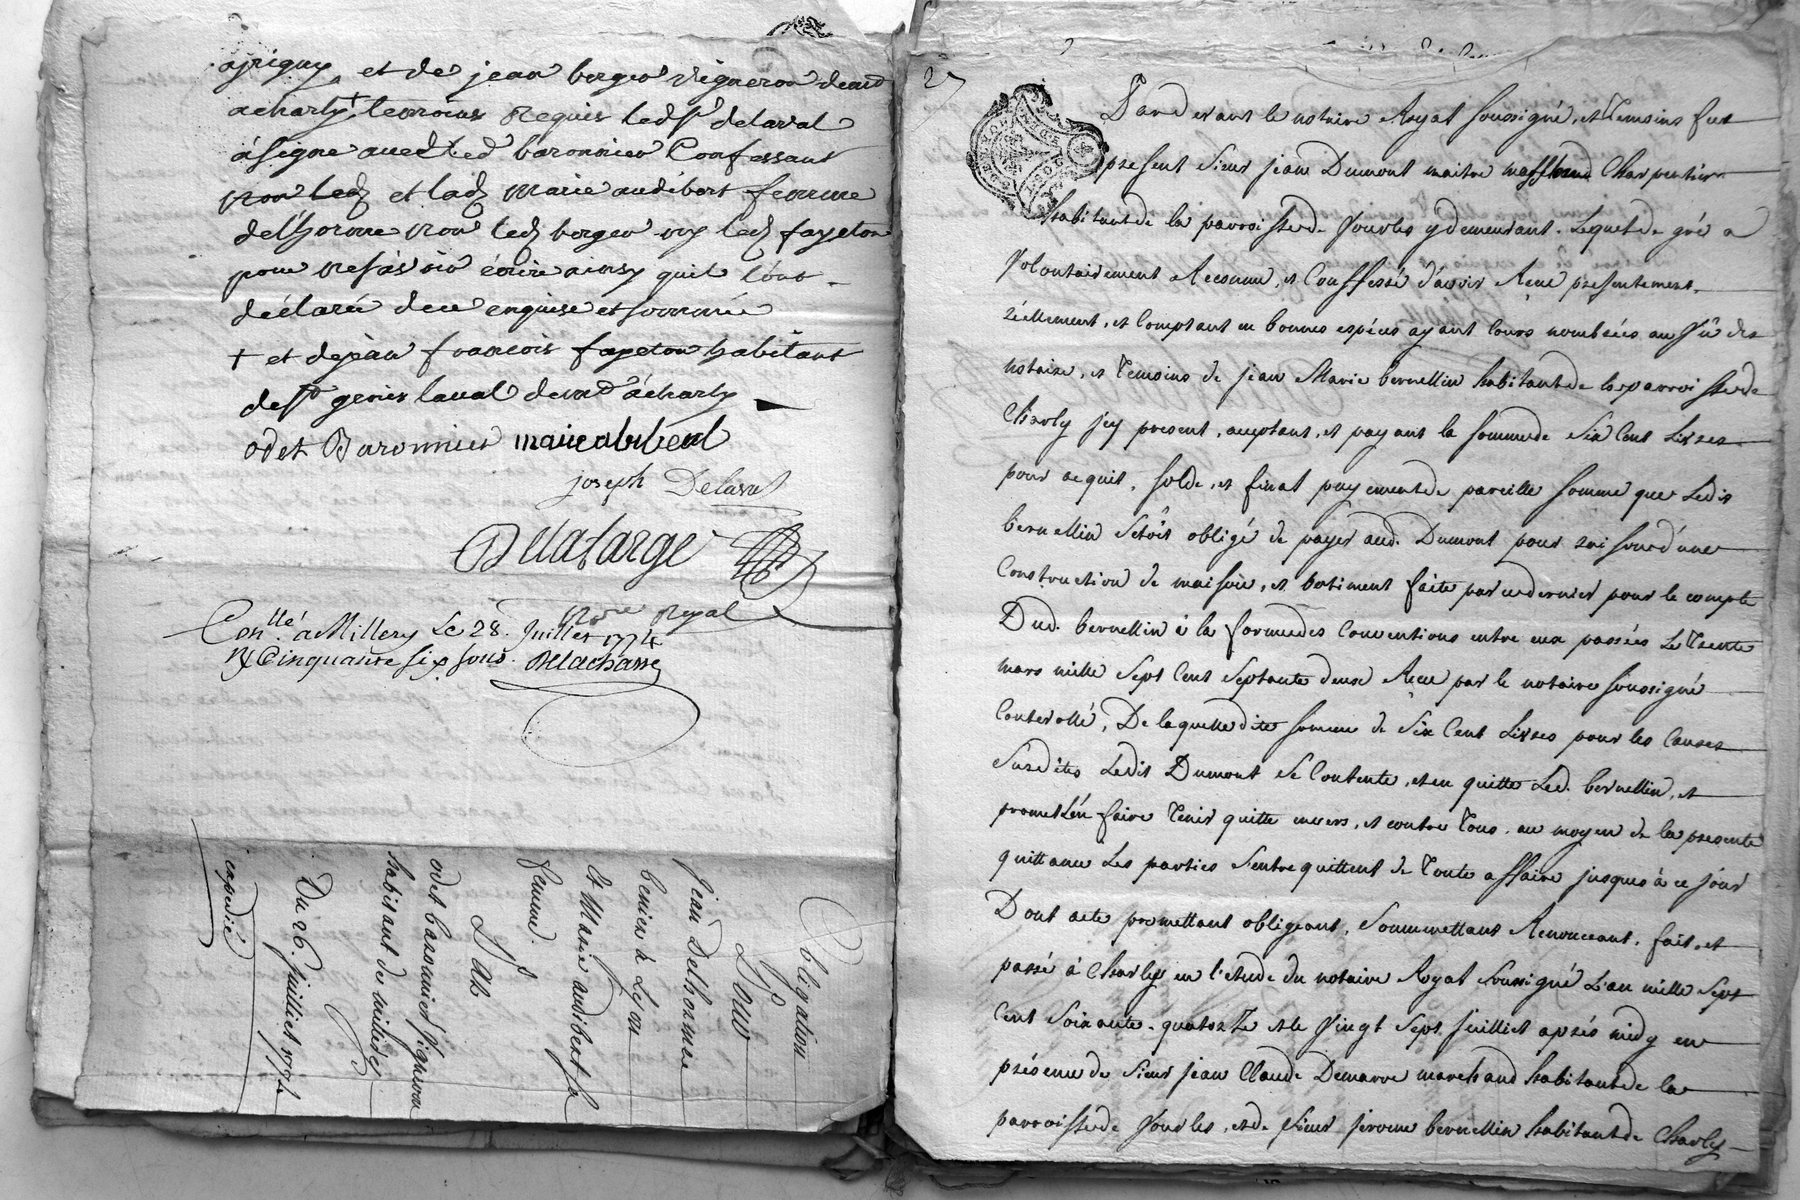 et de jean berger vigneron demt
a charly + temoins requis led sr delaval
à signé avec led baronnier Confessant
non led et lad marie audibert femme
delhorme non led berger ny led fayeton
pour ne sçavoir écrire ainsy quil l'ont
déclaré de ce enquis et sommé
+ et de jean francois fayeton habitant
de st genis laval demt à charly
odet Baronnier marie audibert
joseph Delaval
Delafarge
Nore Royal
Conllé a Millery Le 28 Juillet 1774
R Cinquante six sous. Delachasse
Obligation
Pour
Jean Delhorme
et Marie audibert sa
femme.
Par
Sr odet baronnier vigneron
habitant de milleres
Du 26 juilliet 1774
expedié
27
Pardevant le notaire Royal soussigné, et Temoins fut
present sieur jean Dumont maitre masson Charpentier
habitant de la parroisse de Vourles y demeurant. Lequel de gré a
Volontairement Reconnu, et Conffessé d'avoir Reçu presentement
réellement, et Comptant en bonnes espéces ayant Cours nombrées au Vû des
notaire, et Temoins de jean Marie bernellin habitant de la parroisse de
Charly jcy present, acceptant, et payant la somme de Six Cent Livres
pour acquit, solde, et final payement de pareille somme que Ledit
bernellin s'etoit obligé de payer aud. Dumont pour raison d'une
Construction de maison, et batiment faite par ce dernier pour le compte
Dud. bernellin à la forme des Conventions entre eux passées Le Trente
mars mille Sept Cent Septante deux Reçu par le notaire soussigné
Controllé, De laquelle dite somme de Six Cent Livres pour les Causes
Susdites Ledit Dumont se Contente, et en quitte Led. bernellin, et
promet l'en faire Tenir quitte envers, et contre Tous, au moyen de la presente
quittance Les parties s'entrequittent de Toute affaire jusques à ce jour
Dont acte promettant obligeant, Soummettant Renonceant, fait, et
passé à Charly en l'etude du notaire Royal Soussigné L'an mille Sept
Cent Soixante-quatorze et le Vingt Sept juilliet aprés midy en
présence de Sieur jean Claude Demarre marchand habitant de la
parroisse de Vourles, et de Sieur jerome bernellin habitant de Charly